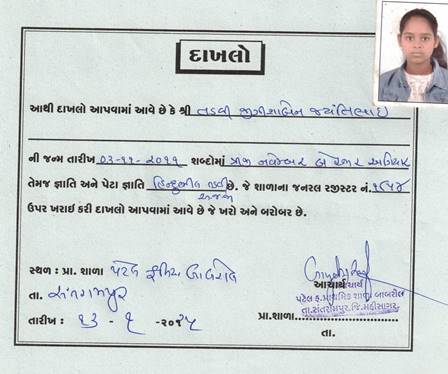 દાખલો
આથી દાખલો આપવામાં આવે છે કે શ્રી તડવી જીગીશાબેન જયંતિભાઇ
ની જન્મ તારીખ ૦૩-૧૧-૨૦૧૧ શબ્દોમાં ત્રીજી નવેમ્બર બે હજાર અગિયાર
તેમજ જ્ઞાતિ અને પેટા જ્ઞાતિ હિન્દુ તડવી છે. જે શાળાના જનરલ રજીસ્ટર નં.
ઉપર ખરાઇ કરી દાખલો આપવામાં આવે છે જે ખરો અને બરોબર છે.
સ્થળ : પ્રા. શાળા પટેલ ફળિયા બાબરોલ
આચાર્ય
તા. સંતરામપુર
પટેલ ફ.પ્રાથમિક શાળા બાબરોલ
તા.સંતરામપુર.જિ.મહીસાગર
તારીખ : ૧૩ - ૧ -૨૦૨૫
પ્રા.શાળા
તા.